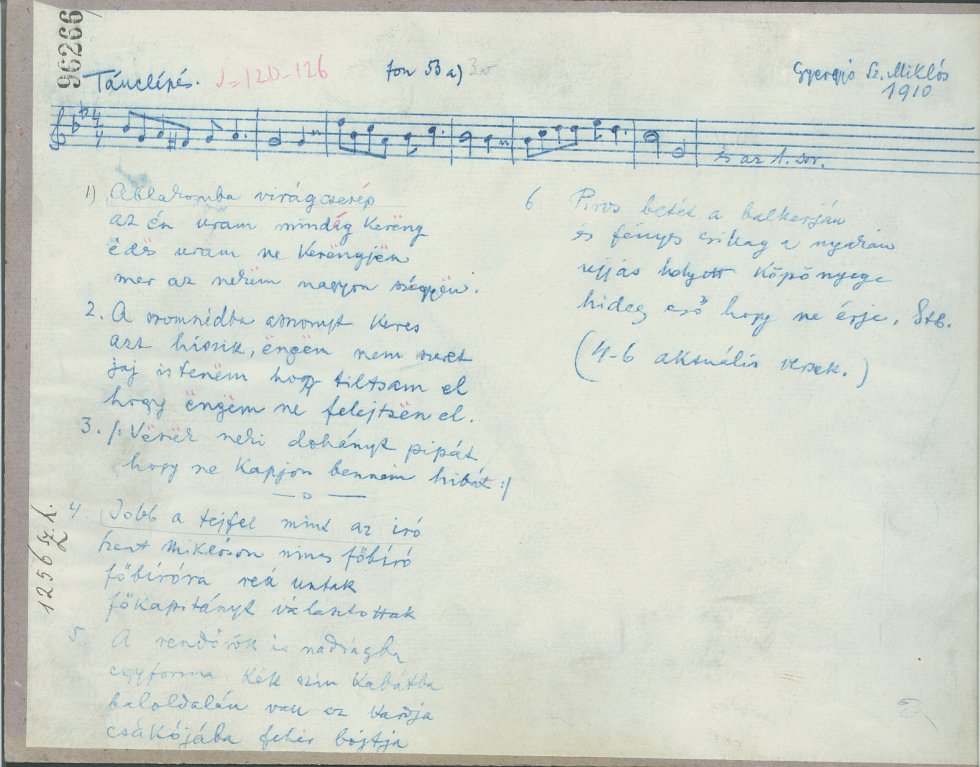 96266
Tánclépés. ♩=120-126
fon 53 a)
Gyergyó Sz. Miklós
1910
4
4
és az 1. sor.
1) Ablakomba virágcserép
az én uram mindég kerëng
édës uram ne kerëngjën
mer az nekëm nagyon szégyën.
2. A szomszédba asszonyt keres
azt hiszik, ëngëm nem szeret
jaj istenëm hogy tiltsam el
hogy ëngëm ne felejtsën el.
3. /: Vëszëk neki dohányt pipát
hogy ne kapjon bennem hibát :/
— o —
4 Jobb a tejfel mint az iró
Szent Miklóson nincs főbíró
főbíróra reá untak
főkapitányt választottak
5. A rendőrök is nadrágba
egyforma kék szin kabátba
baloldalán van az kardja
csákójába fehér bojtja
6. Piros betét a balkarján
és fényes csillag a nyakán
ujjas holyott köpönyege
hideg eső hogy ne érje. Stb.
(4-6 aktuális versek.)
1256 sz. l.